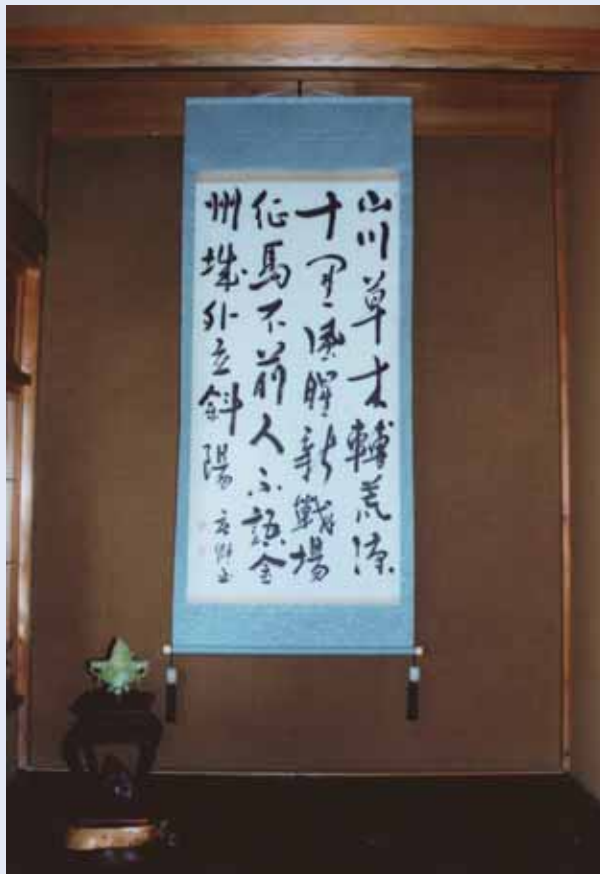 山川草木轉荒涼
十里風腥新戰場
征馬不前人不語金
州城外立斜陽